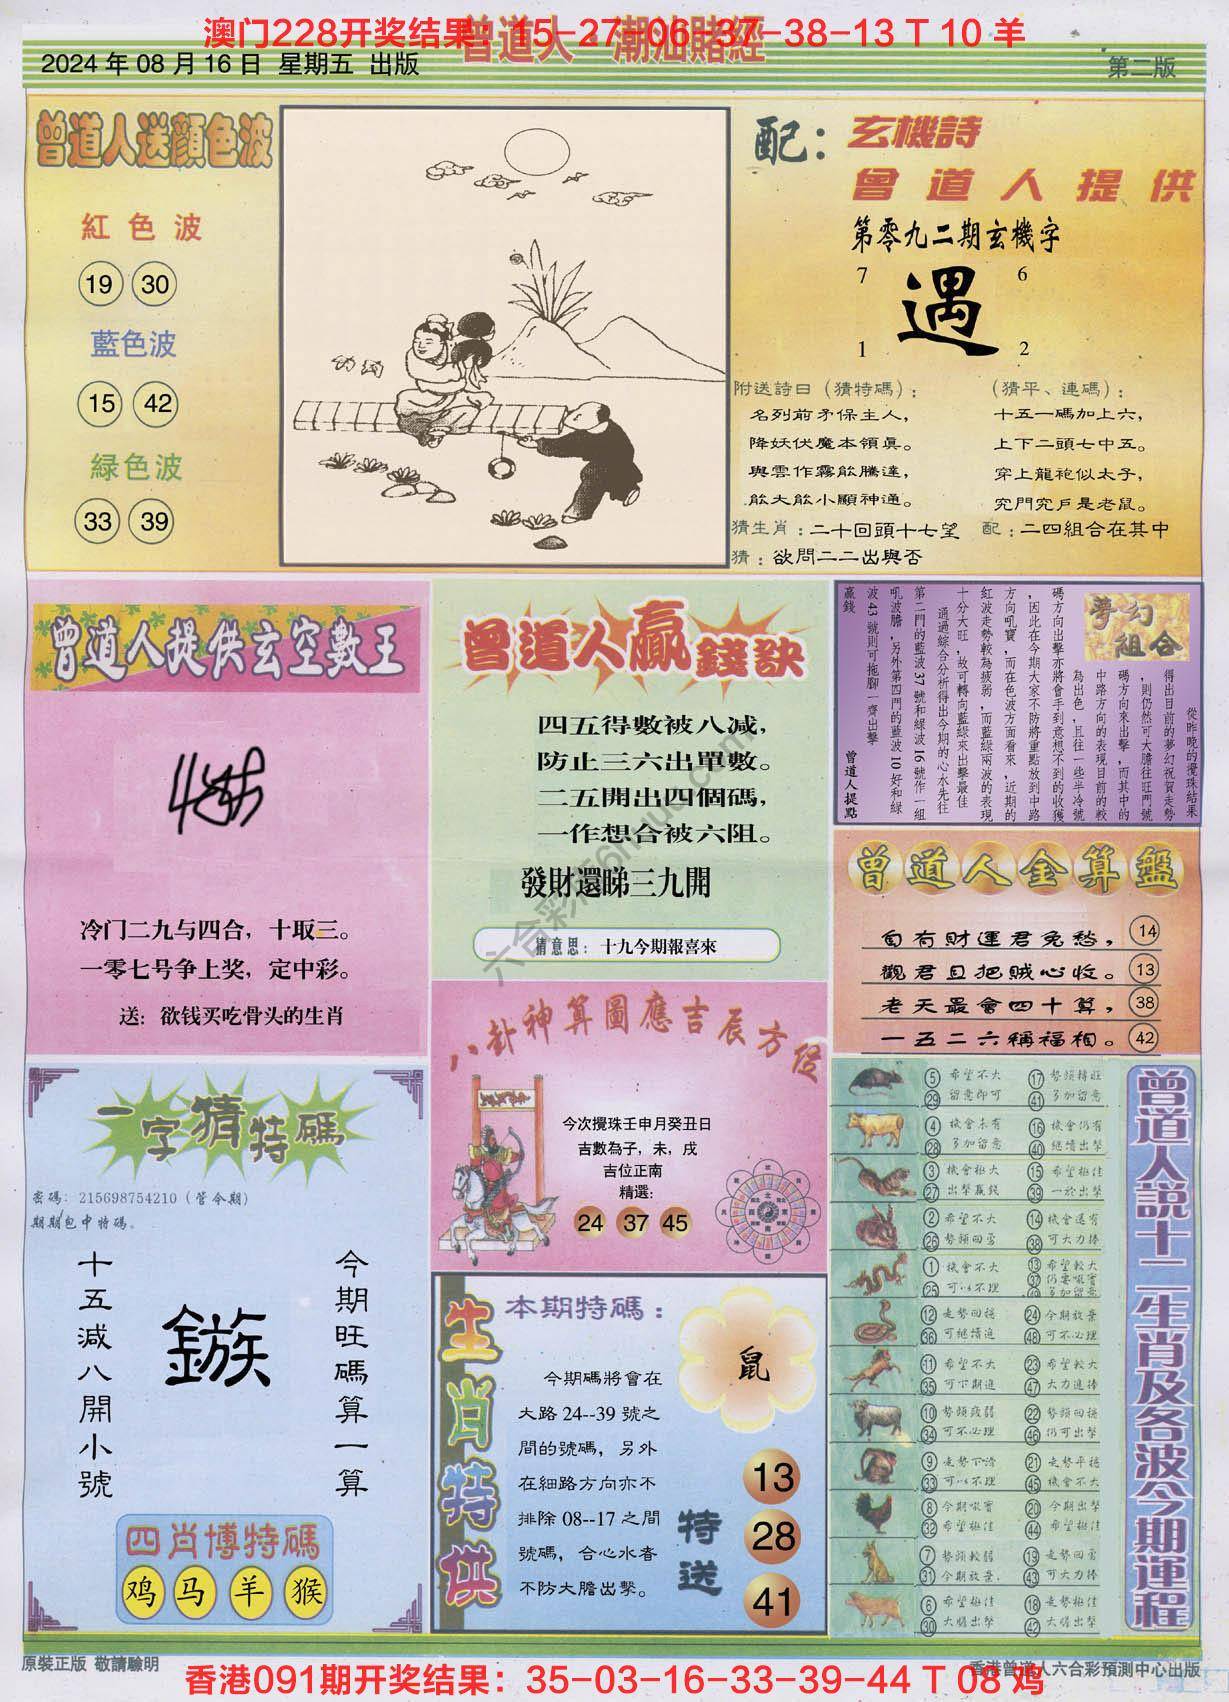 澳门228开奖结果：15-27-06-37-38-13 T 10 羊
曾道人 潮汕賭經
2024 年 08 月 16 日 星期五 出版
第二版
曾道人送顏色波
紅色波
19 30
藍色波
15 42
綠色波
33 39
配：玄機詩
曾道人提供
第零九二期玄機字
7 6
遇
1 2
附送詩曰（猜特碼）：
名列前矛保主人，
降妖伏魔本領眞。
與雲作霧能騰達，
能大能小顯神通。
（猜平、連碼）：
十五一碼加上六，
上下二頭七中五。
穿上龍袍似太子，
究門究戶是老鼠。
猜生肖：二十回頭十七望
配：二四組合在其中
猜：欲問二二出與否
曾道人提供玄空數王
冷门二九与四合，十取三。
一零七号争上奖，定中彩。
送：欲钱买吃骨头的生肖
曾道人贏錢訣
四五得數被八减，
防止三六出單數。
二五開出四個碼，
一作想合被六阻。
發財還睇三九開
猜意思：十九今期報喜來
夢幻組合
從昨晚的攪珠結果
得出目前的夢幻祝賀走勢
，則仍然可大膽往旺門號
碼方向來出擊，而其中的
中路方向的表現目前的較
為出色，且往一些半冷號
碼方向出擊亦將會手到意想不到的收獲
，因此在今期大家不防將重點放到中路
方向吼寶，而在色波方面看來，近期的
紅波走勢較為疲弱，而藍綠兩波的表現
十分大旺，故可轉向藍綠來出擊最佳
通過綜合分析得出今期的心水先往
第二門的藍波 37 號和綠波 16 號作一組
吼波膽，另外第四門的藍波 10 好和綠
波 43 號則可拖腳一齊出擊
贏錢
曾道人提點
曾道人金算盤
旬有財運君免愁， 14
觀君且把賊心收。 13
老天最會四十算， 38
一五二六稱福相。 42
八卦神算圖應吉辰方位
今次攪珠壬申月癸丑日
吉數為子，未，戌
吉位正南
精選：
24 37 45
一字猜特碼
密碼：215698754210（管今期）
期期包中特碼。
今期旺碼算一算
鏃
十五減八開小號
四肖博特碼
鸡 马 羊 猴
生肖特供
本期特碼：
鼠
今期碼將會在
大路 24--39 號之
間的號碼，另外
在細路方向亦不
排除 08--17 之間
號碼，合心水者
不防大膽出擊。
特送
13
28
41
曾道人説十二生肖及各波今期運程
5 希望不大 17 勢頭轉旺
29 留意即可 41 多加留意
4 機會未有 16 機會仍有
28 多加留意 40 繼續出擊
3 機會極大 15 希望極佳
27 出擊贏錢 39 一於出擊
2 希望不大 14 機會還有
26 勢頭回勇 38 可大力捧
1 機會不大 13 希望較大
25 可以不理 37 仍要吼實
多加出擊
12 走勢回穩 24 今期放棄
36 可繼續追 48 可不必理
11 希望不大 23 希望較大
35 可下期追 47 大力追捧
10 勢頭疲弱 22 勢頭回穩
34 可不必理 46 仍可出擊
9 走勢下滑 21 走勢平穩
33 可以不理 45 機會不大
8 今期吼實 20 今期出擊
32 希望極佳 44 希望極佳
7 勢頭較弱 19 走勢回勇
31 今期放棄. 43 可大力捧
6 希望極佳 18 走勢極佳
30 大膽出擊 42 大膽出擊
原裝正版 敬請驗明
香港091期开奖结果：35-03-16-33-39-44 T 08 鸡
香港曾道人六合彩預測中心出版